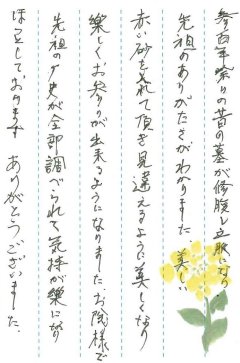 参百年余りの昔の墓が修復し立派になり
先祖のありがたさがわかりました 美しい
赤い砂を入れて頂き見違えるように美しくなり
楽しくお参りが出来るようになりました。お陰様で
先祖の歴史が全部調べられて気持が楽になり
ほっとしております ありがとうございました。